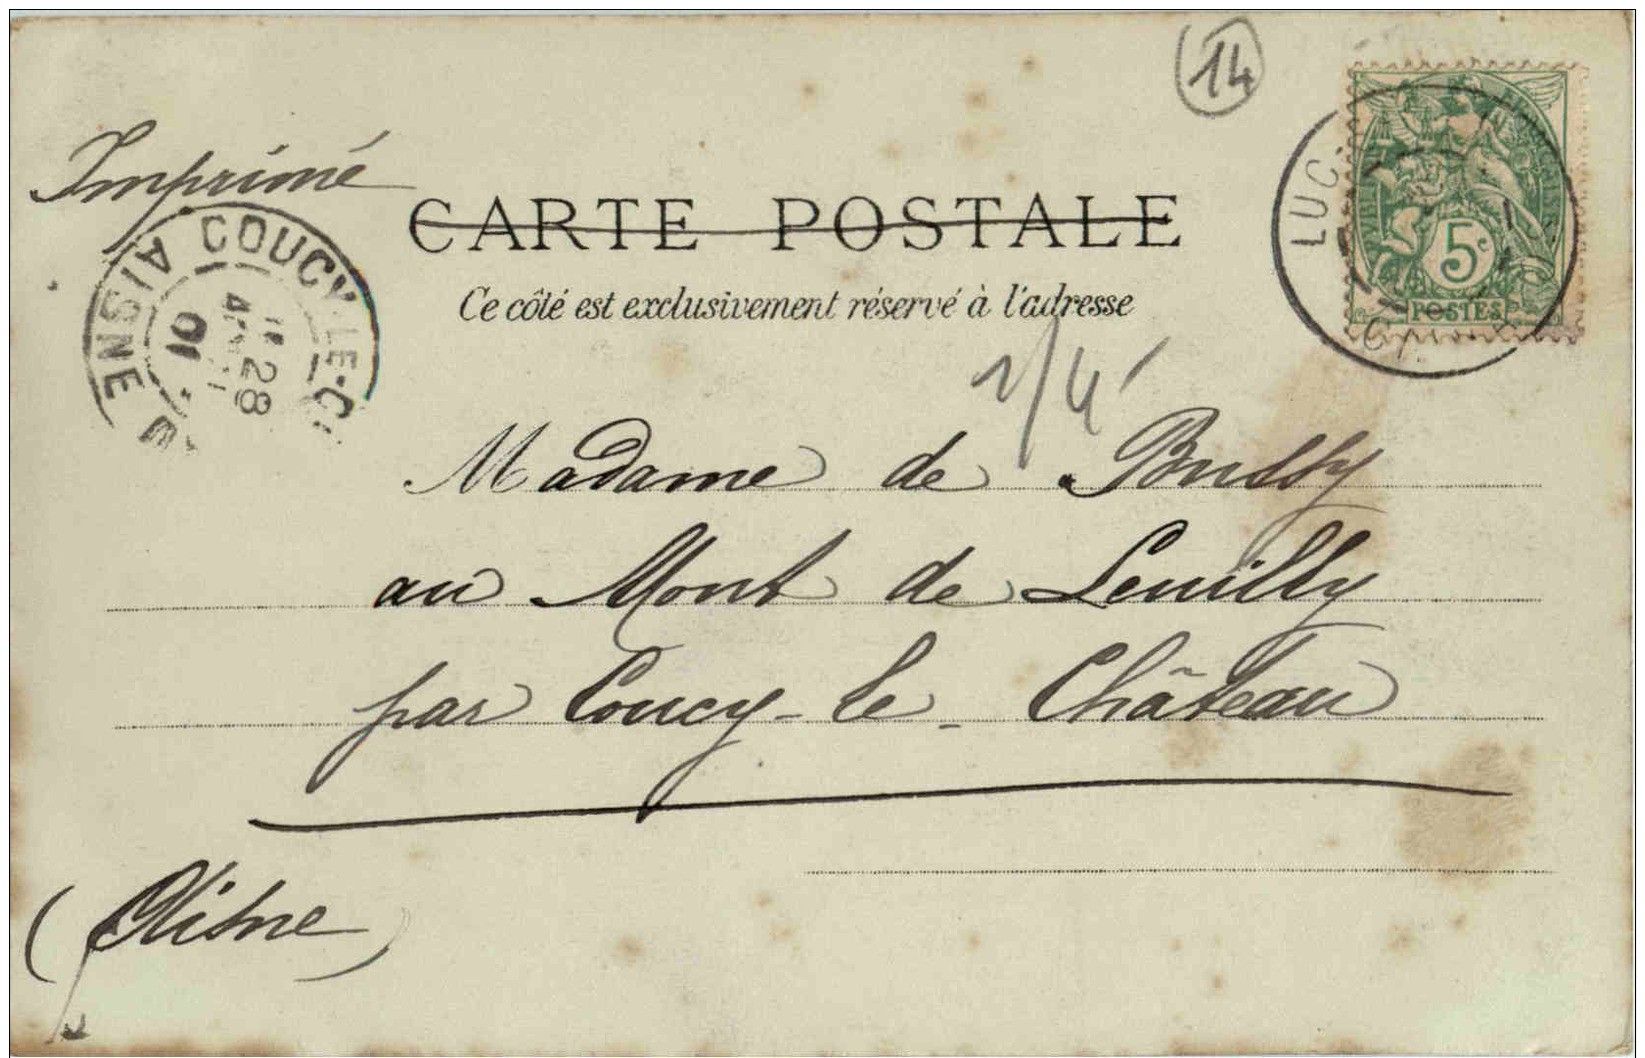 14
Imprimé
CARTE POSTALE
Ce côté est exclusivement réservé à l'adresse
COUCY-LE-C
AISNE
28
01
LUC
5c
POSTES
Madame de Bussy
au Mont de Leuilly
par Coucy-le-Château
(Aisne)